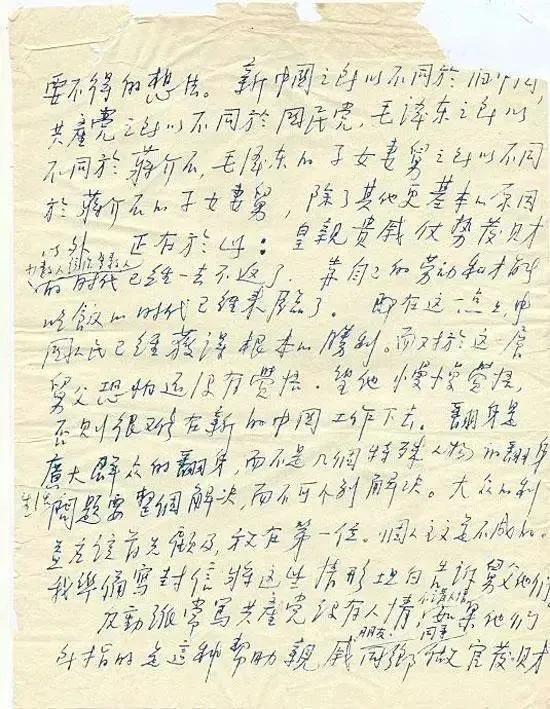 要不得的想法。新中國之所以不同於旧中國,
共產党之所以不同於國民党,毛泽东之所以
不同於蔣介石,毛泽东的子女妻舅之所以不同
於蔣介石的子女妻舅,除了其他更基本的原因
以外 正在於此:皇親貴戚仗势發財
少数人统治多数人
的時代已经一去不返了。靠自己的劳动和才能
吃飯的時代已经來临了。 在这一点上中
國人民已经獲得根本的勝利。而对於这一层
舅父恐怕还没有覺悟。望他慢慢覺悟,
否则很难在新的中國工作下去。翻身是
廣大群众的翻身,而不是几個特殊人物的翻身
生活問題要整個解决,而不可个别解决。大众的利
益应该首先顧及,放在第一位。個人主义是不成的。
我準備寫封信将这些情形坦白告訴舅父他们
不講人情
反動派常罵共產党没有人情,如果他们
朋友 同事
所指的是这种帮助親戚同鄉做官發財